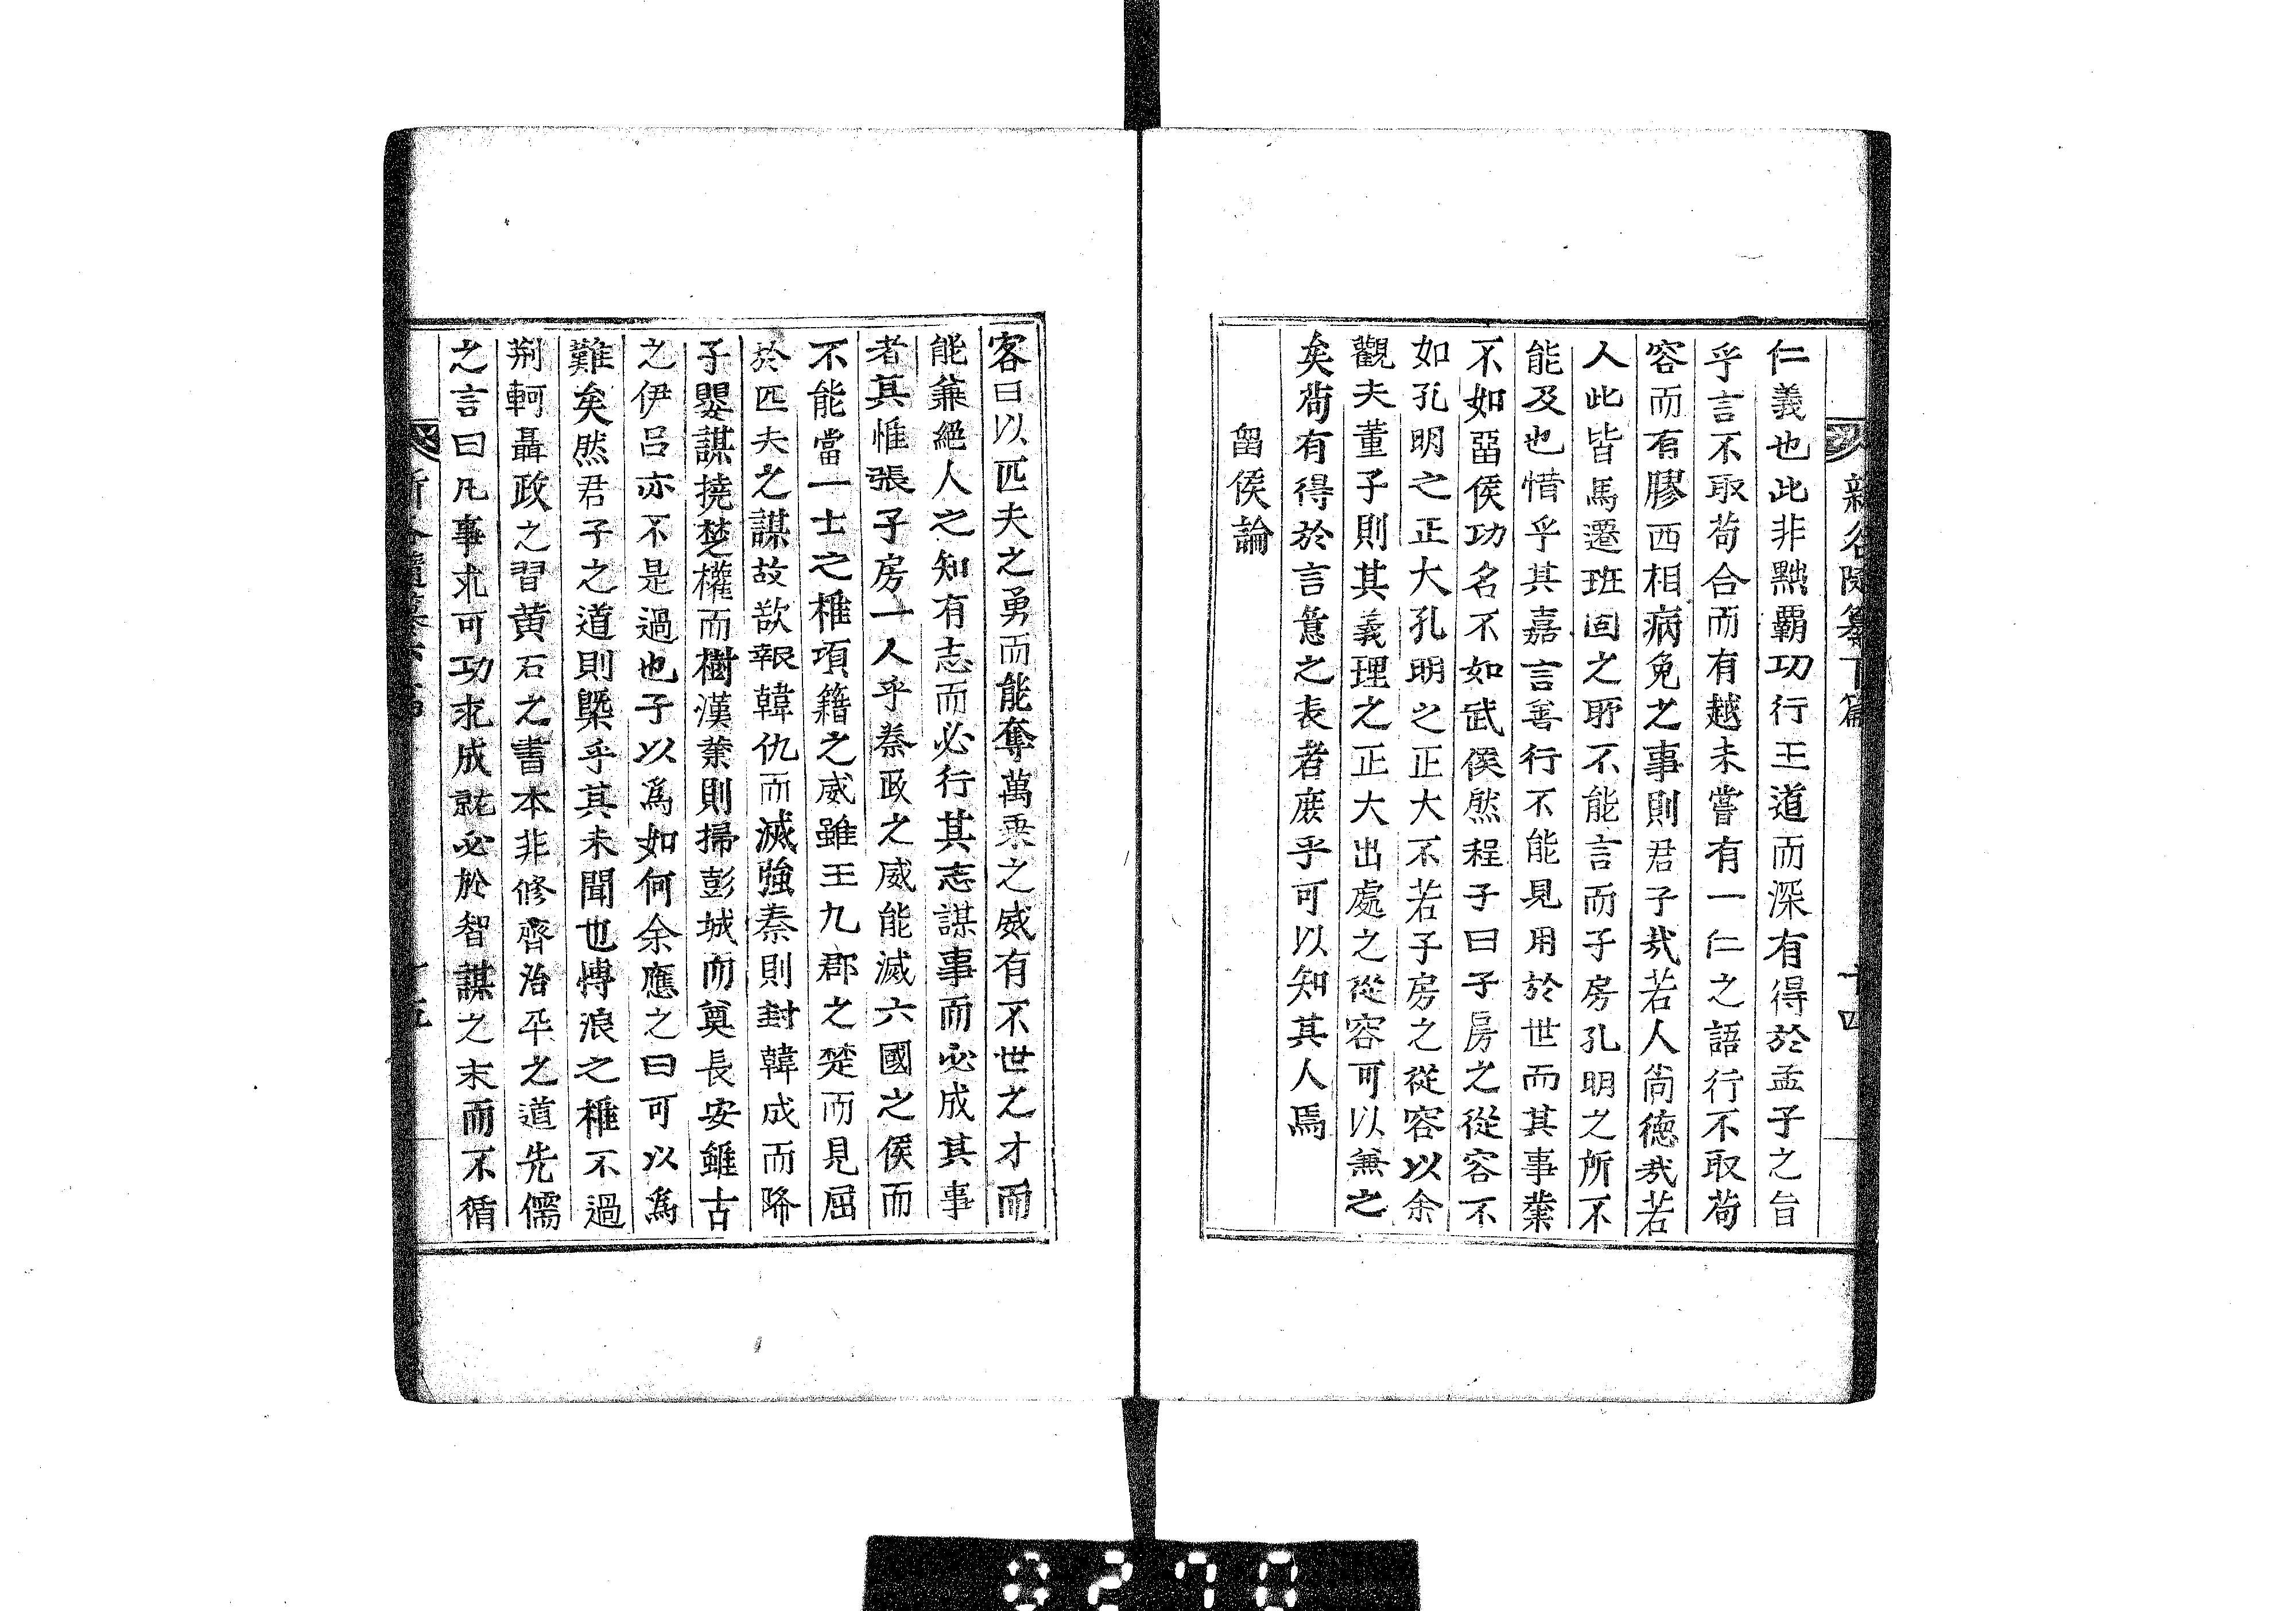 新谷随纂下篇 十四
仁義也此非黜覇功行王道而深有得於孟子之旨
乎言不取苟合而有越未嘗有一仁之語行不取苟
容而有膠西相病免之事則君子㦲若人尚德㦲若
人此皆馬遷班固之所不能言而子房孔明之所不
能及也惜乎其嘉言善行不能見用於世而其事業
不如畱侯功名不如武侯然程子曰子房之從容不
如孔明之正大孔明之正大不若子房之從容以余
觀夫董子則其義理之正大出處之從容可以兼之
矣苟有得於言意之表者庶乎可以知其人焉
畱侯論
客曰以匹夫之勇而能奪萬乘之威有不世之才而
能兼絕人之知有志而必行其志謀事而必成其事
者其惟張子房一人乎秦政之威能滅六國之侯而
不能當一士之椎項籍之威雖王九郡之楚而見屈
於匹夫之謀故欲報韓仇而滅強秦則封韓成而降
子嬰謀撓楚權而樹漢業則掃彭城而奠長安雖古
之伊呂亦不是過也子以爲如何余應之曰可以爲
難矣然君子之道則槩乎其未聞也博浪之椎不過
荆軻聶政之習黄石之書本非修齊治平之道先儒
之言曰凡事求可功求成就必於智謀之末而不循